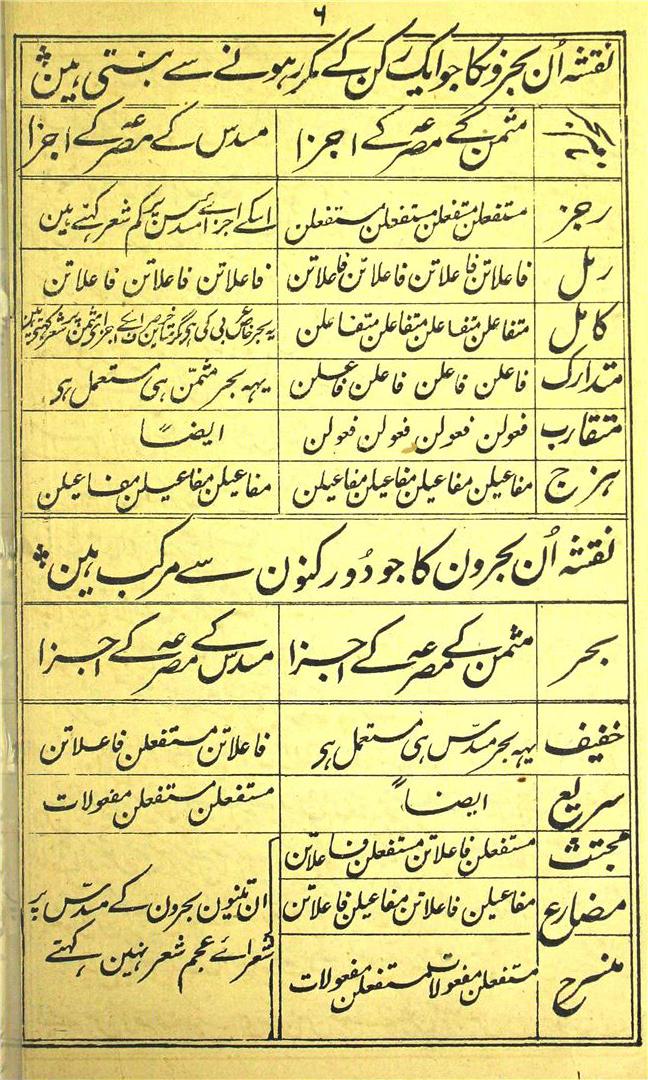 ۶
نقشہ اُن بحرونکا جو ایک رکن کے مکرر ہونے سے بنتی ہین
مثمن کے مصرعہ کے اجزا مسدّس کے مصرعہ کے اجزا
رجز مستفعلن مستفعلن مستفعلن مستفعلن اسکے اجزائے مسدس پر کم شعر کہتے ہین
رمل فاعلاتن فاعلاتن فاعلاتن فاعلاتن فاعلاتن فاعلاتن فاعلاتن
کامل متفاعلن متفاعلن متفاعلن متفاعلن یہ بحر خاص
متدارک فاعلن فاعلن فاعلن فاعلن یہہ بحر مثمّن ہی مستعمل ہو
متقارب فعولن فعولن فعولن فعولن ایضاً
ہزج مفاعیلن مفاعیلن مفاعیلن مفاعیلن مفاعیلن مفاعیلن مفاعیلن
نقشہ اُن بحرون کا جو دُو رکنون سے مرکب ہین
بحر مثمن کے مصرعہ کے اجزا مسدس کے مصرعہ کے اجزا
خفیف یہہ بحر مدسّ ہی مستعمل ہو فاعلاتن مستفعلن فاعلاتن
سریع ایضاً مستفعلن مستفعلن مفعولات
مجتث مستفعلن فاعلاتن مستفعلن فاعلاتن
مضارع مفاعیلن فاعلاتن مفاعیلن فاعلاتن
منسرح مستفعلن مفعولات مستفعلن مفعولات
ان تینون بحرون کے مسدّس پر
شعرائے عجم شعر نہین کہتے